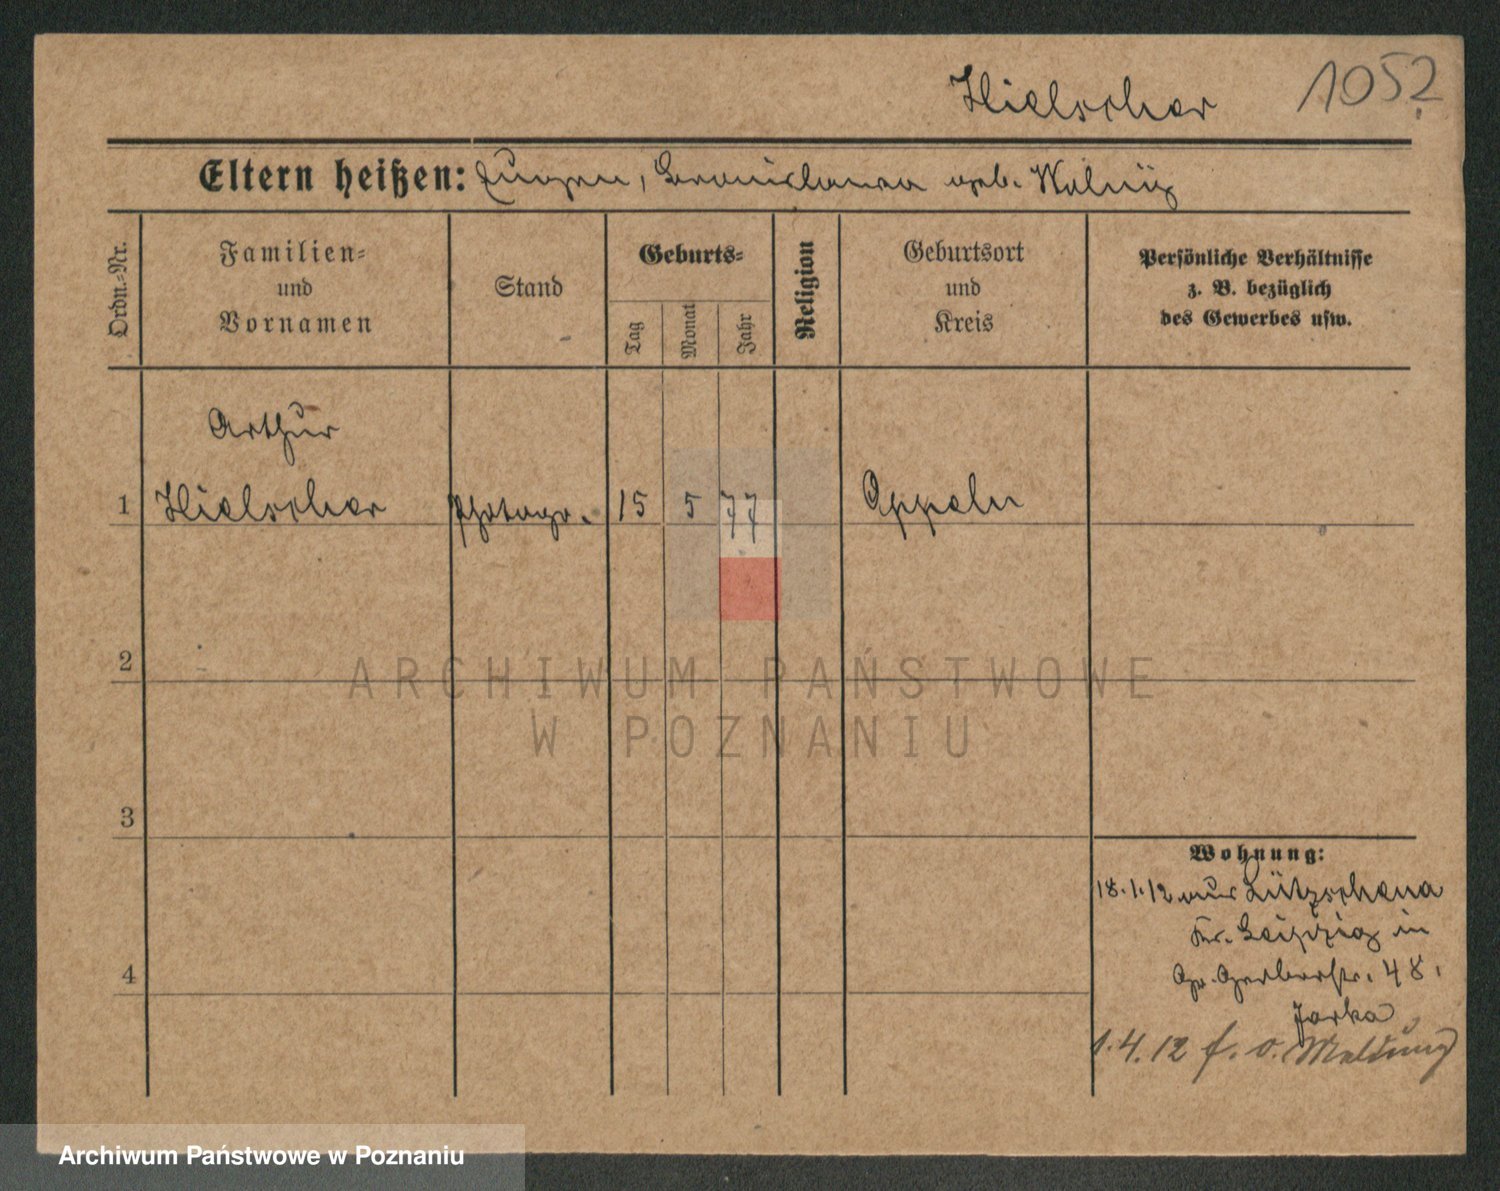 Hielscher 1052
Eltern heißen: Eugen, Bronislawa geb. Wolnÿ
Ordn.-Nr.
Familien-
und
Vornamen
Stand
Geburts-
Tag
Monat
Jahr
Religion
Geburtsort
und
Kreis
Persönliche Verhältnisse
z. B. bezüglich
des Gewerbes usw.
Arthur
1 Hielscher Photogr. 15 5 77 Oppeln
2
ARCHIWUM PAŃSTWOWE
W POZNANIU
3
Wohnung:
18.1.12 aus Lützschena
Kr. Leipzig in
Gr. Gerberstr. 48.
Jarka
4
1.4.12 f. o. Meldung
Archiwum Państwowe w Poznaniu